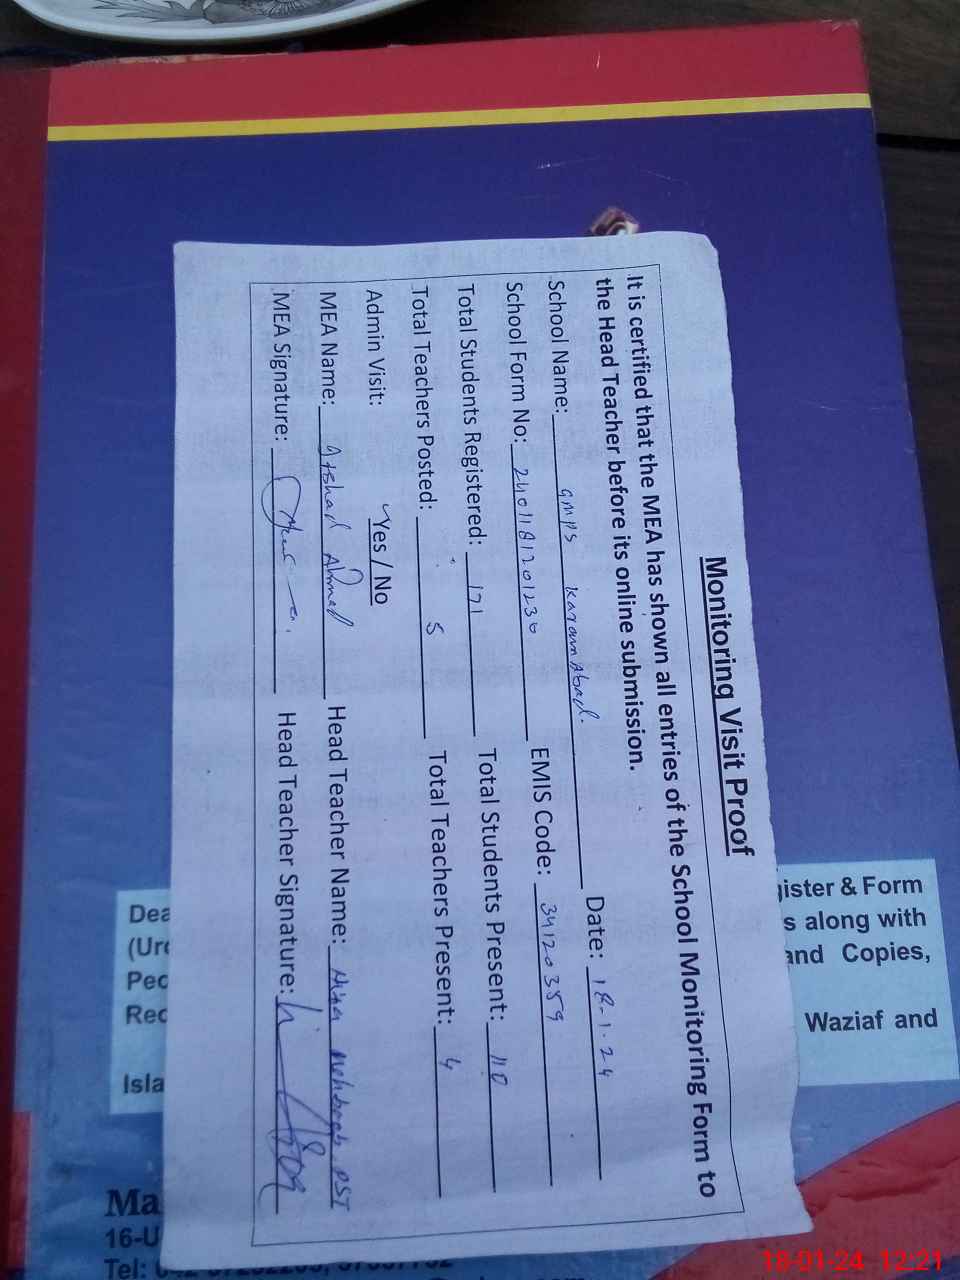 Monitoring Visit Proof
It is certified that the MEA has shown all entries of the School Monitoring Form to
the Head Teacher before its online submission.
School Name: GMPS Karam Abad. Date: 18-1-24
School Form No: EMIS Code: 34120359
Total Students Registered: 171 Total Students Present: 110
Total Teachers Posted: 5 Total Teachers Present: 4
Admin Visit: Yes / No
MEA Name: Ahmad Head Teacher Name: PST
MEA Signature: Head Teacher Signature:
gister & Form
s along with
and Copies,
Waziaf and
Dea
(Urd
Pec
Rec
Isla
Ma
16-U
Tel:
18-01-24 12:21